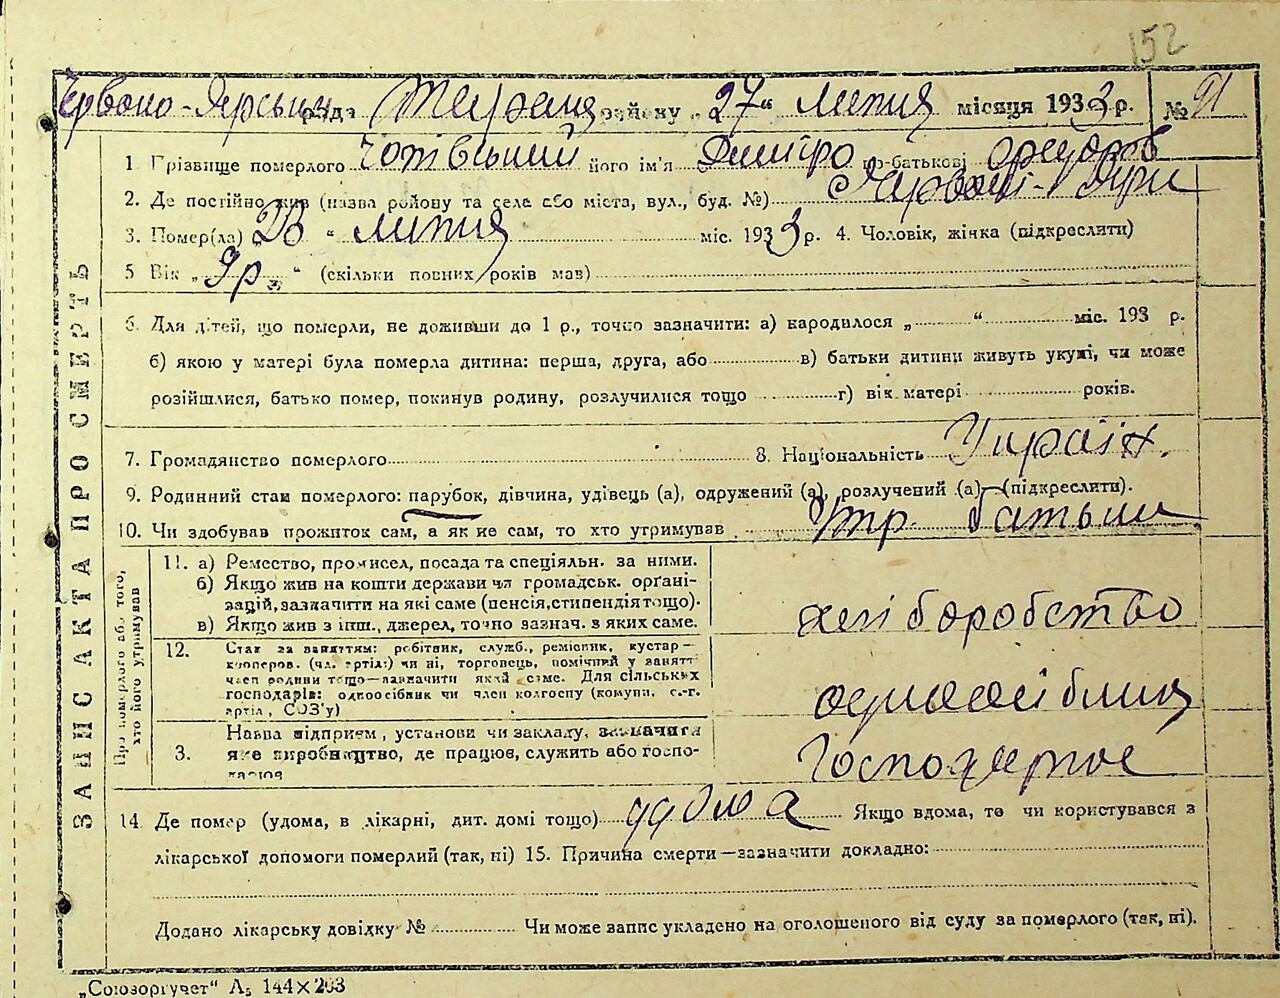 152
Червоно-Ярська рада район у „27“ липня місяця 1933 р. № 91
ЗАПИС АКТА ПРО СМЕРТЬ
1. Прізвище померлого його ім'я Дмитро по-батькові
2. Де постійно жив (назва району та села або міста, вул., буд. №) с Червоні-Яри
3. Помер(ла) „ “ липня міс. 1933 р. 4. Чоловік, жінка (підкреслити)
5 Вік „9 р.“ (скільки повних років мав)
6. Для дітей, що померли, не доживши до 1 р., точно зазначити: а) народилося „ “ міс. 193 р.
б) якою у матері була померла дитина: перша, друга, або в) батьки дитини живуть укупі, чи може
розійшлися, батько помер, покинув родину, розлучилися тощо г) вік матері років.
7. Громадянство померлого 8. Національність Україн.
9. Родинний стан померлого: парубок, дівчина, удівець (а), одружений (а), розлучений (а)—(підкреслити).
10. Чи здобував прожиток сам, а як не сам, то хто утримував Утр. батьки
Про померлого або того, хто його утримував
11. а) Ремество, промисел, посада та спеціяльн. за ними.
б) Якщо жив на кошти держави чи громадськ. орґані-
зацій, зазначити на які саме (пенсія, стипендія тощо).
в) Якщо жив з інш., джерел, точно зазнач. з яких саме.
хліборобство
12. Стан за заняттям: робітник, служб., ремісник, кустар—
кооперов. (чл. артілі) чи ні, торговець, помічний у занятті
член родини тощо—зазначити який саме. Для сільських
господарів: одноосібник чи член колгоспу (комуни, с.-г.
артіл., СОЗ'у)
3. Назва підприєм., установи чи закладу, зазначити
яке виробництво, де працює, служить або госпо-
дарює
14. Де помер (удома, в лікарні, дит. домі тощо) удома Якщо вдома, то чи користувався з
лікарської допомоги померлий (так, ні) 15. Причина смерти—зазначити докладно:
Додано лікарську довідку № Чи може запис укладено на оголошеного від суду за померлого (так, ні).
„Союзоргучет“ А₅ 144×203